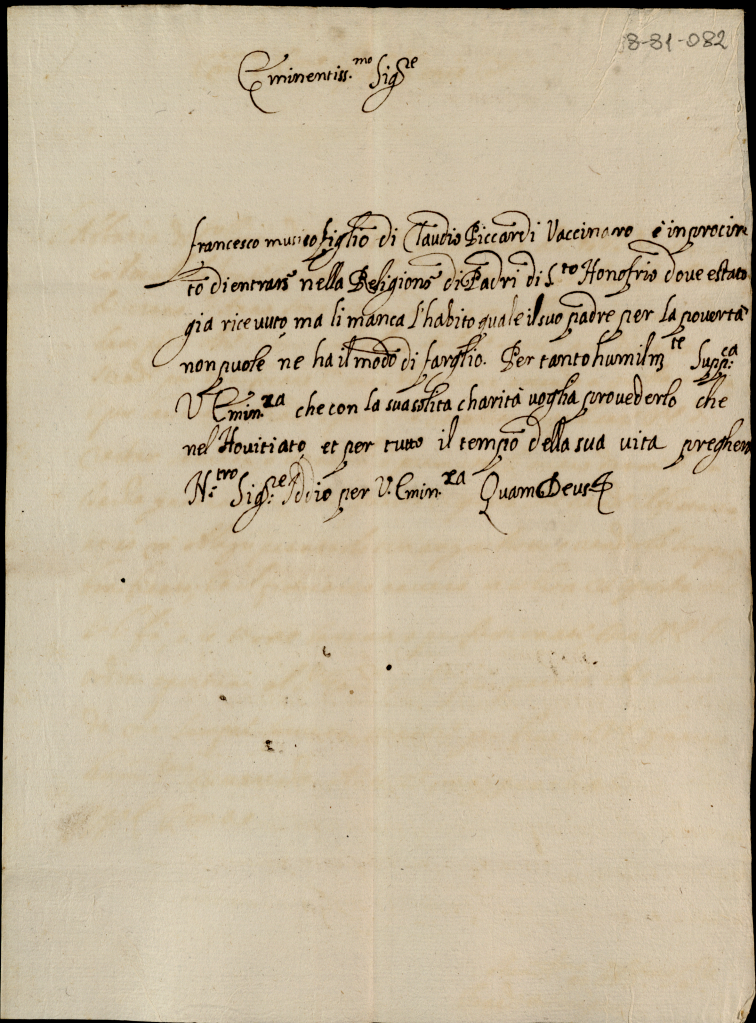 8-81-082
Eminentiss.mo Sig.re
Francesco musico figlio di Claudio Piccardi Vaccinaro è in procin
to di entrare nella Religione di Padri di S.to Honofrio dove e stato
gia ricevuto ma li manca l'habito quale il suo padre per la povertà
non puole ne ha il modo di farglio. Per tanto humilm.te Supp.ca
V. Emin.za che con la sua solita charità voglia provederlo che
nel Novitiato et per tutto il tempo della sua vita pregherà
N.tro Sig.re Iddio per V. Emin.za Quam Deus